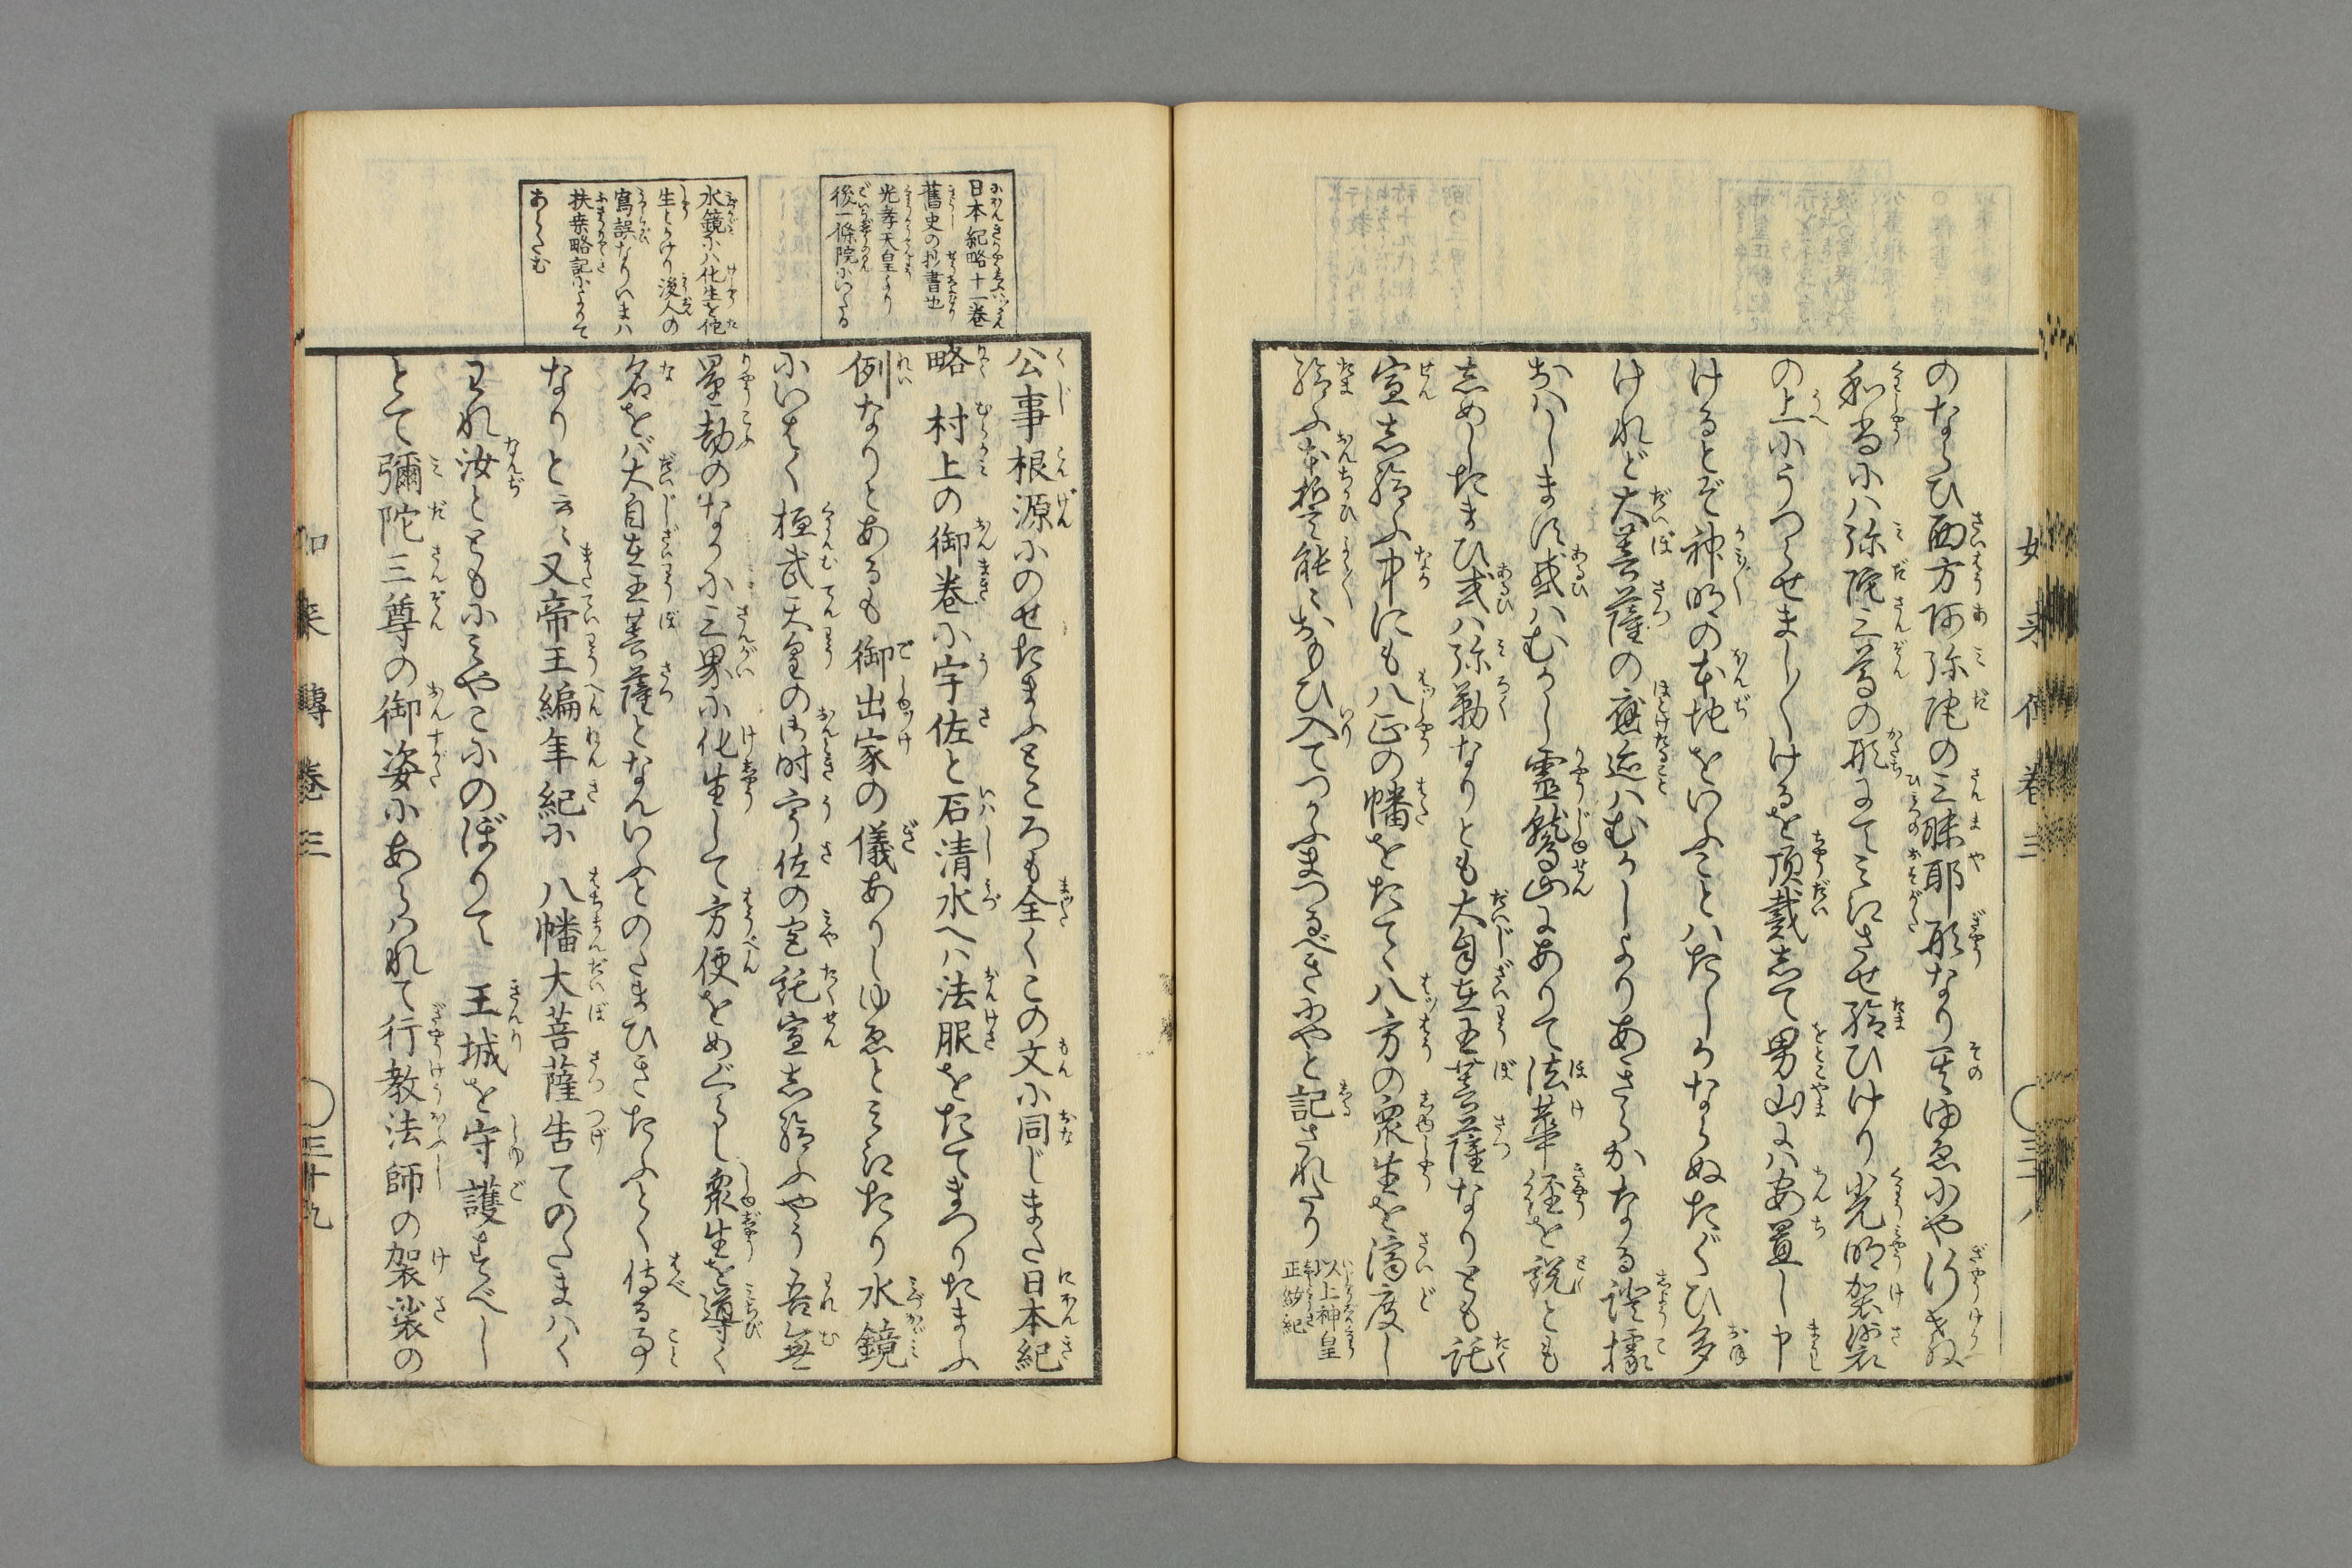 のならひ西方阿弥陀の三昧耶形なり其ゆゑにや行教
和尚には弥陀三尊の形にてみえさせ給ひけり光明袈裟
の上にうつらせまし〳〵けるを頂戴して男山には安置し申
けるとぞ神明の本地をいふことはたしかならぬたぐひ多
けれど大菩薩の應迹はむかしよりあきらかなる證據
おはしますにや或はむかし霊鷲山にありて法華経を説とも
しめしたまひ或は弥勒なりとも大自在王菩薩なりとも託
宣し給ふ中にも八正の幡をたてゝ八方の衆生を済度し
給ふ本誓を能々おもひ入てつかふまつるべきにやと記されたり
以上神皇
正統紀
如来傳巻三
〇三十八
日本紀略十一巻
舊史の抄書也
光孝天皇より
後一條院にいたる
水鏡には化生を他
生とかけり後人の
寫誤なりいまは
扶桑略記によりて
あらたむ
公事根源にのせたまふところも全くこの文に同じまた日本紀
略村上の御巻に宇佐と石清水へは法服をたてまつりたまふ
例なりとあるも御出家の儀ありしゆゑとみえたり水鏡
にいはく桓武天皇の御時宇佐の宮託宣し給ふやう吾無
量劫のなかに三界に化生して方便をめぐらし衆生を導く
名をバ大自在王菩薩となんいふとのたまひきたふとく侍る事
なりと云々又帝王編年紀に八幡大菩薩告てのたまはく
われ汝とともにみやこにのぼりて王城を守護すべし
とて彌陀三尊の御姿にあらはれて行教法師の袈裟の
如来傳巻三
〇三十九